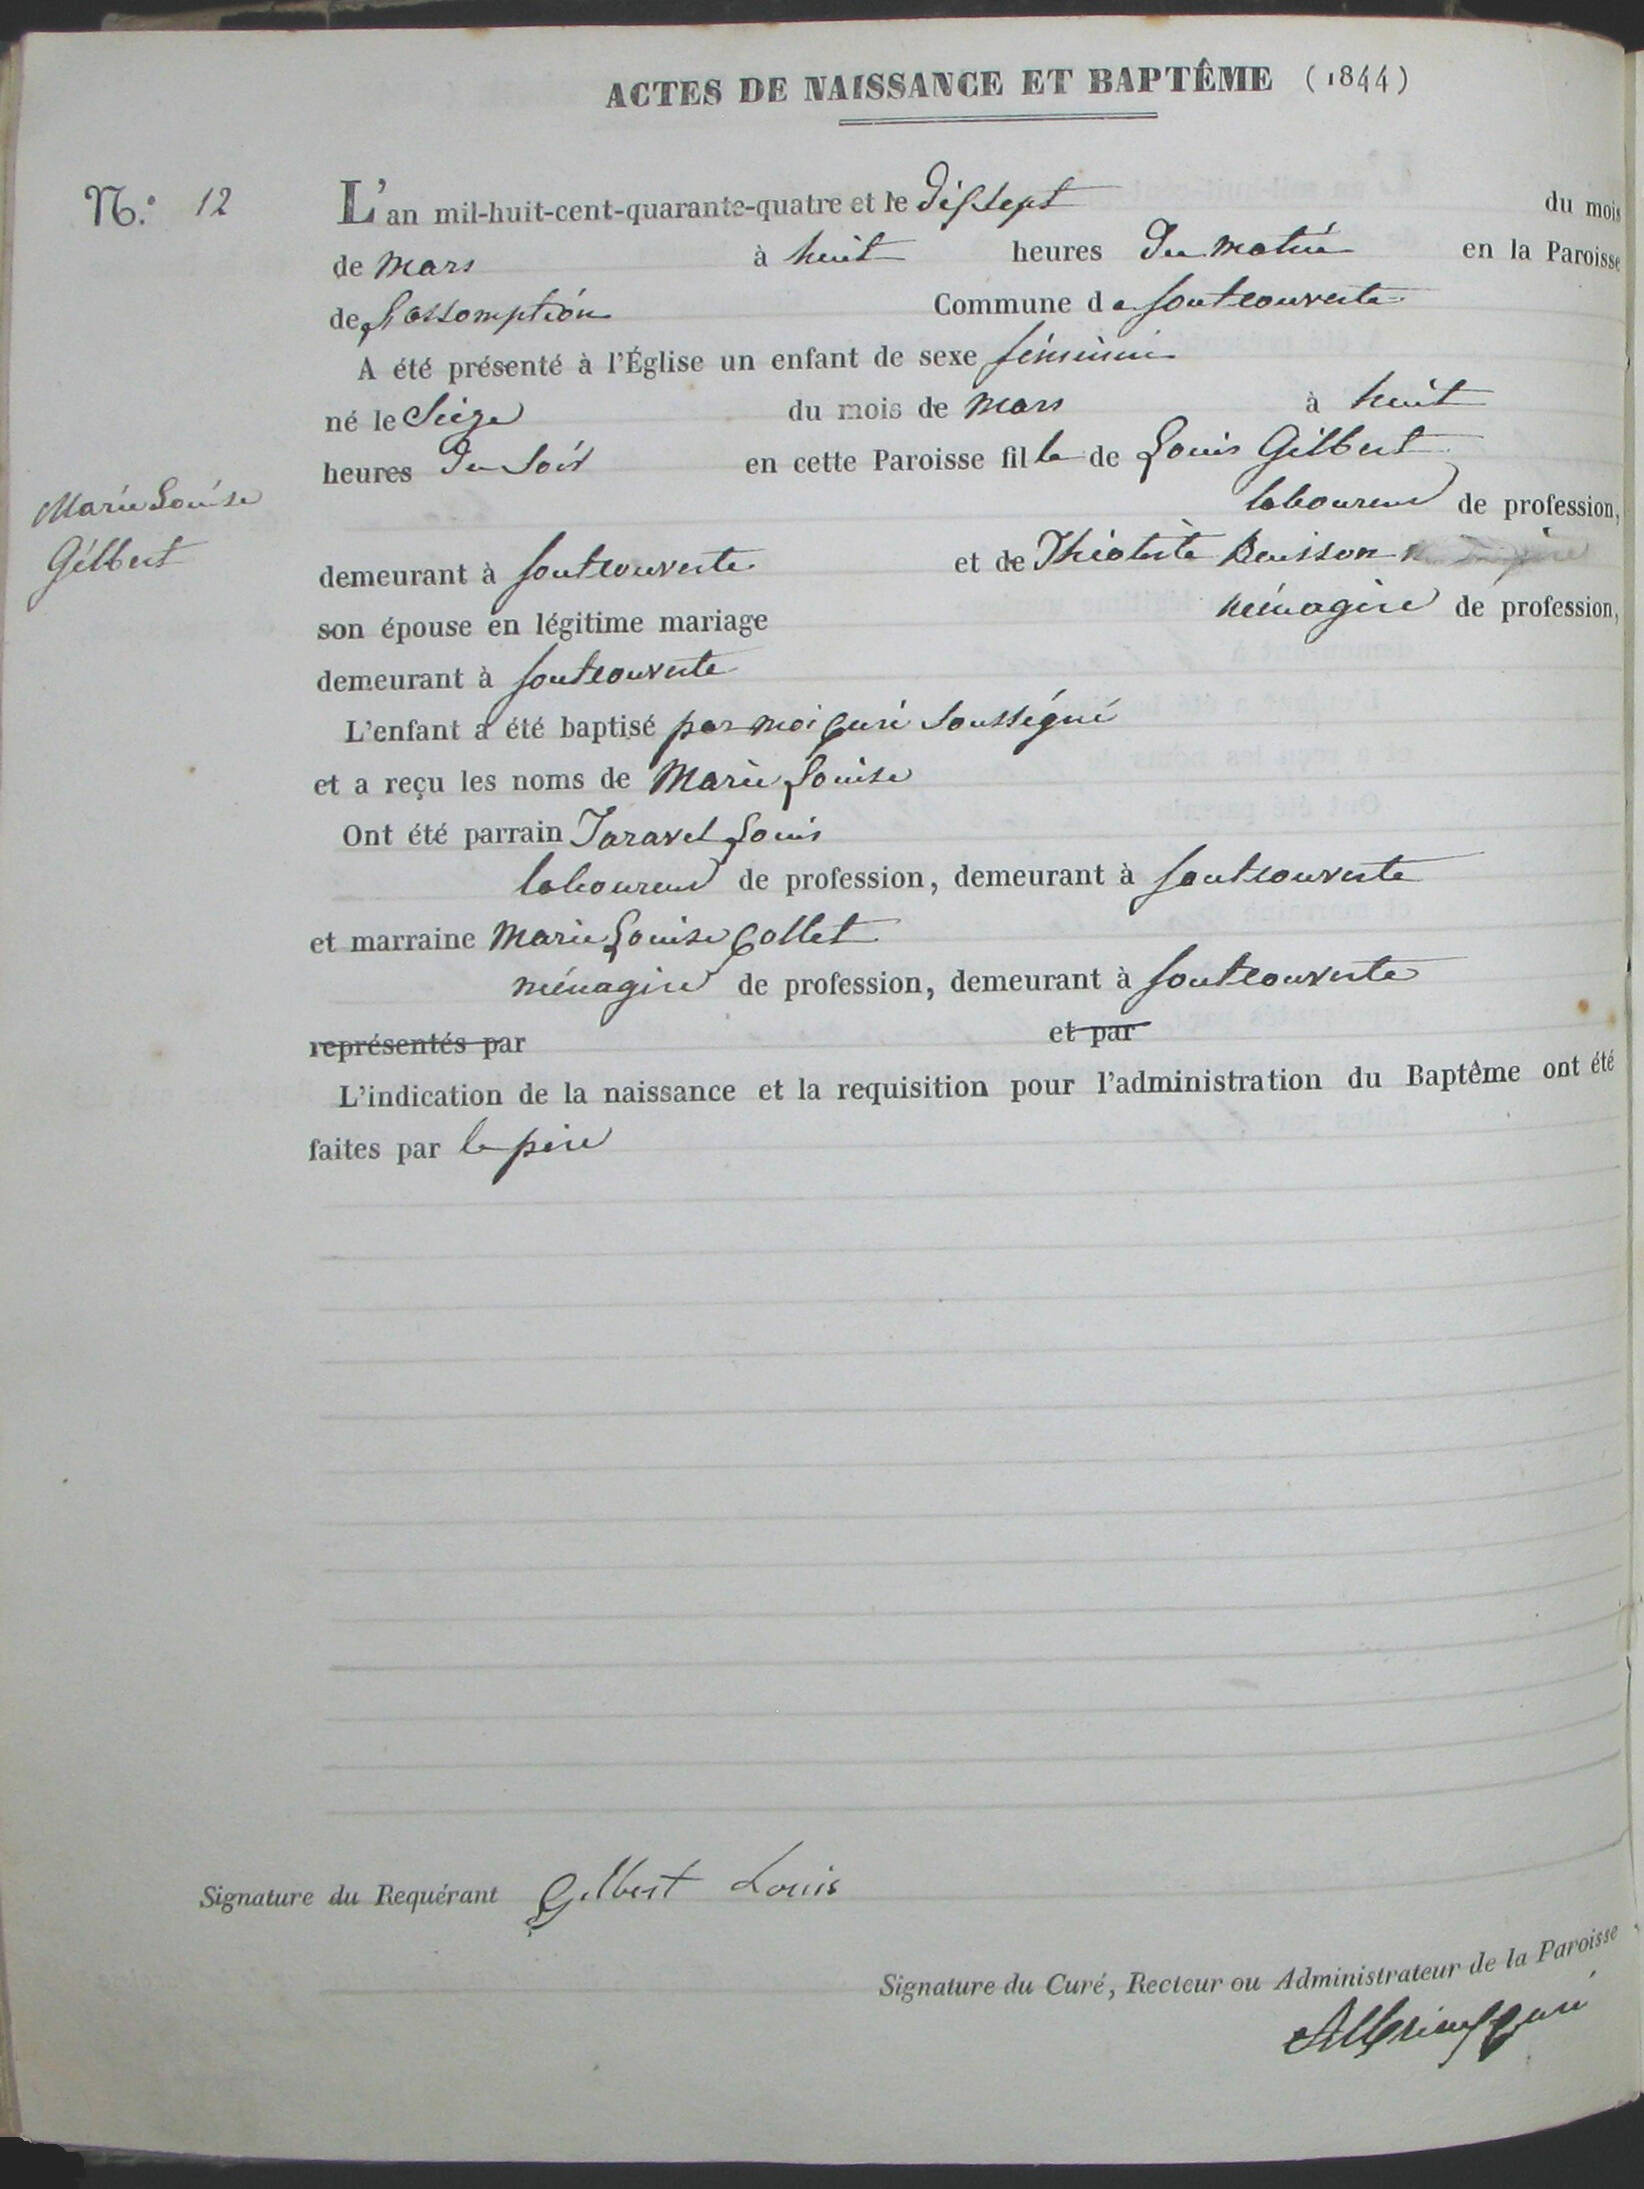 ACTES DE NAISSANCE ET BAPTÊME (1844)
N.° 12
L'an mil-huit-cent-quarante-quatre et le dissept du mois
de mars à huit heures du matin en la Paroisse
de L'assomption Commune de fontcouverte
A été présenté à l'Église un enfant de sexe féminin
né le Seize du mois de mars à huit
heures du Soir en cette Paroisse fille de Louis Gilbert
Marie Louise
laboureur de profession,
Gilbert
demeurant à fontcouverte et de Thèotiste Buisson
son épouse en légitime mariage ménagère de profession,
demeurant à fontcouverte
L'enfant a été baptisé par moi Curé Soussigné
et a reçu les noms de Marie Louise
Ont été parrain Taravel Louis
laboureur de profession, demeurant à fontcouverte
et marraine Marie Louise Collet
ménagère de profession, demeurant à fontcouverte
représentés par et par
L'indication de la naissance et la requisition pour l'administration du Baptême ont été
faites par le père
Signature du Requérant Gilbert Louis
Signature du Curé, Recteur ou Administrateur de la Paroisse
Curé